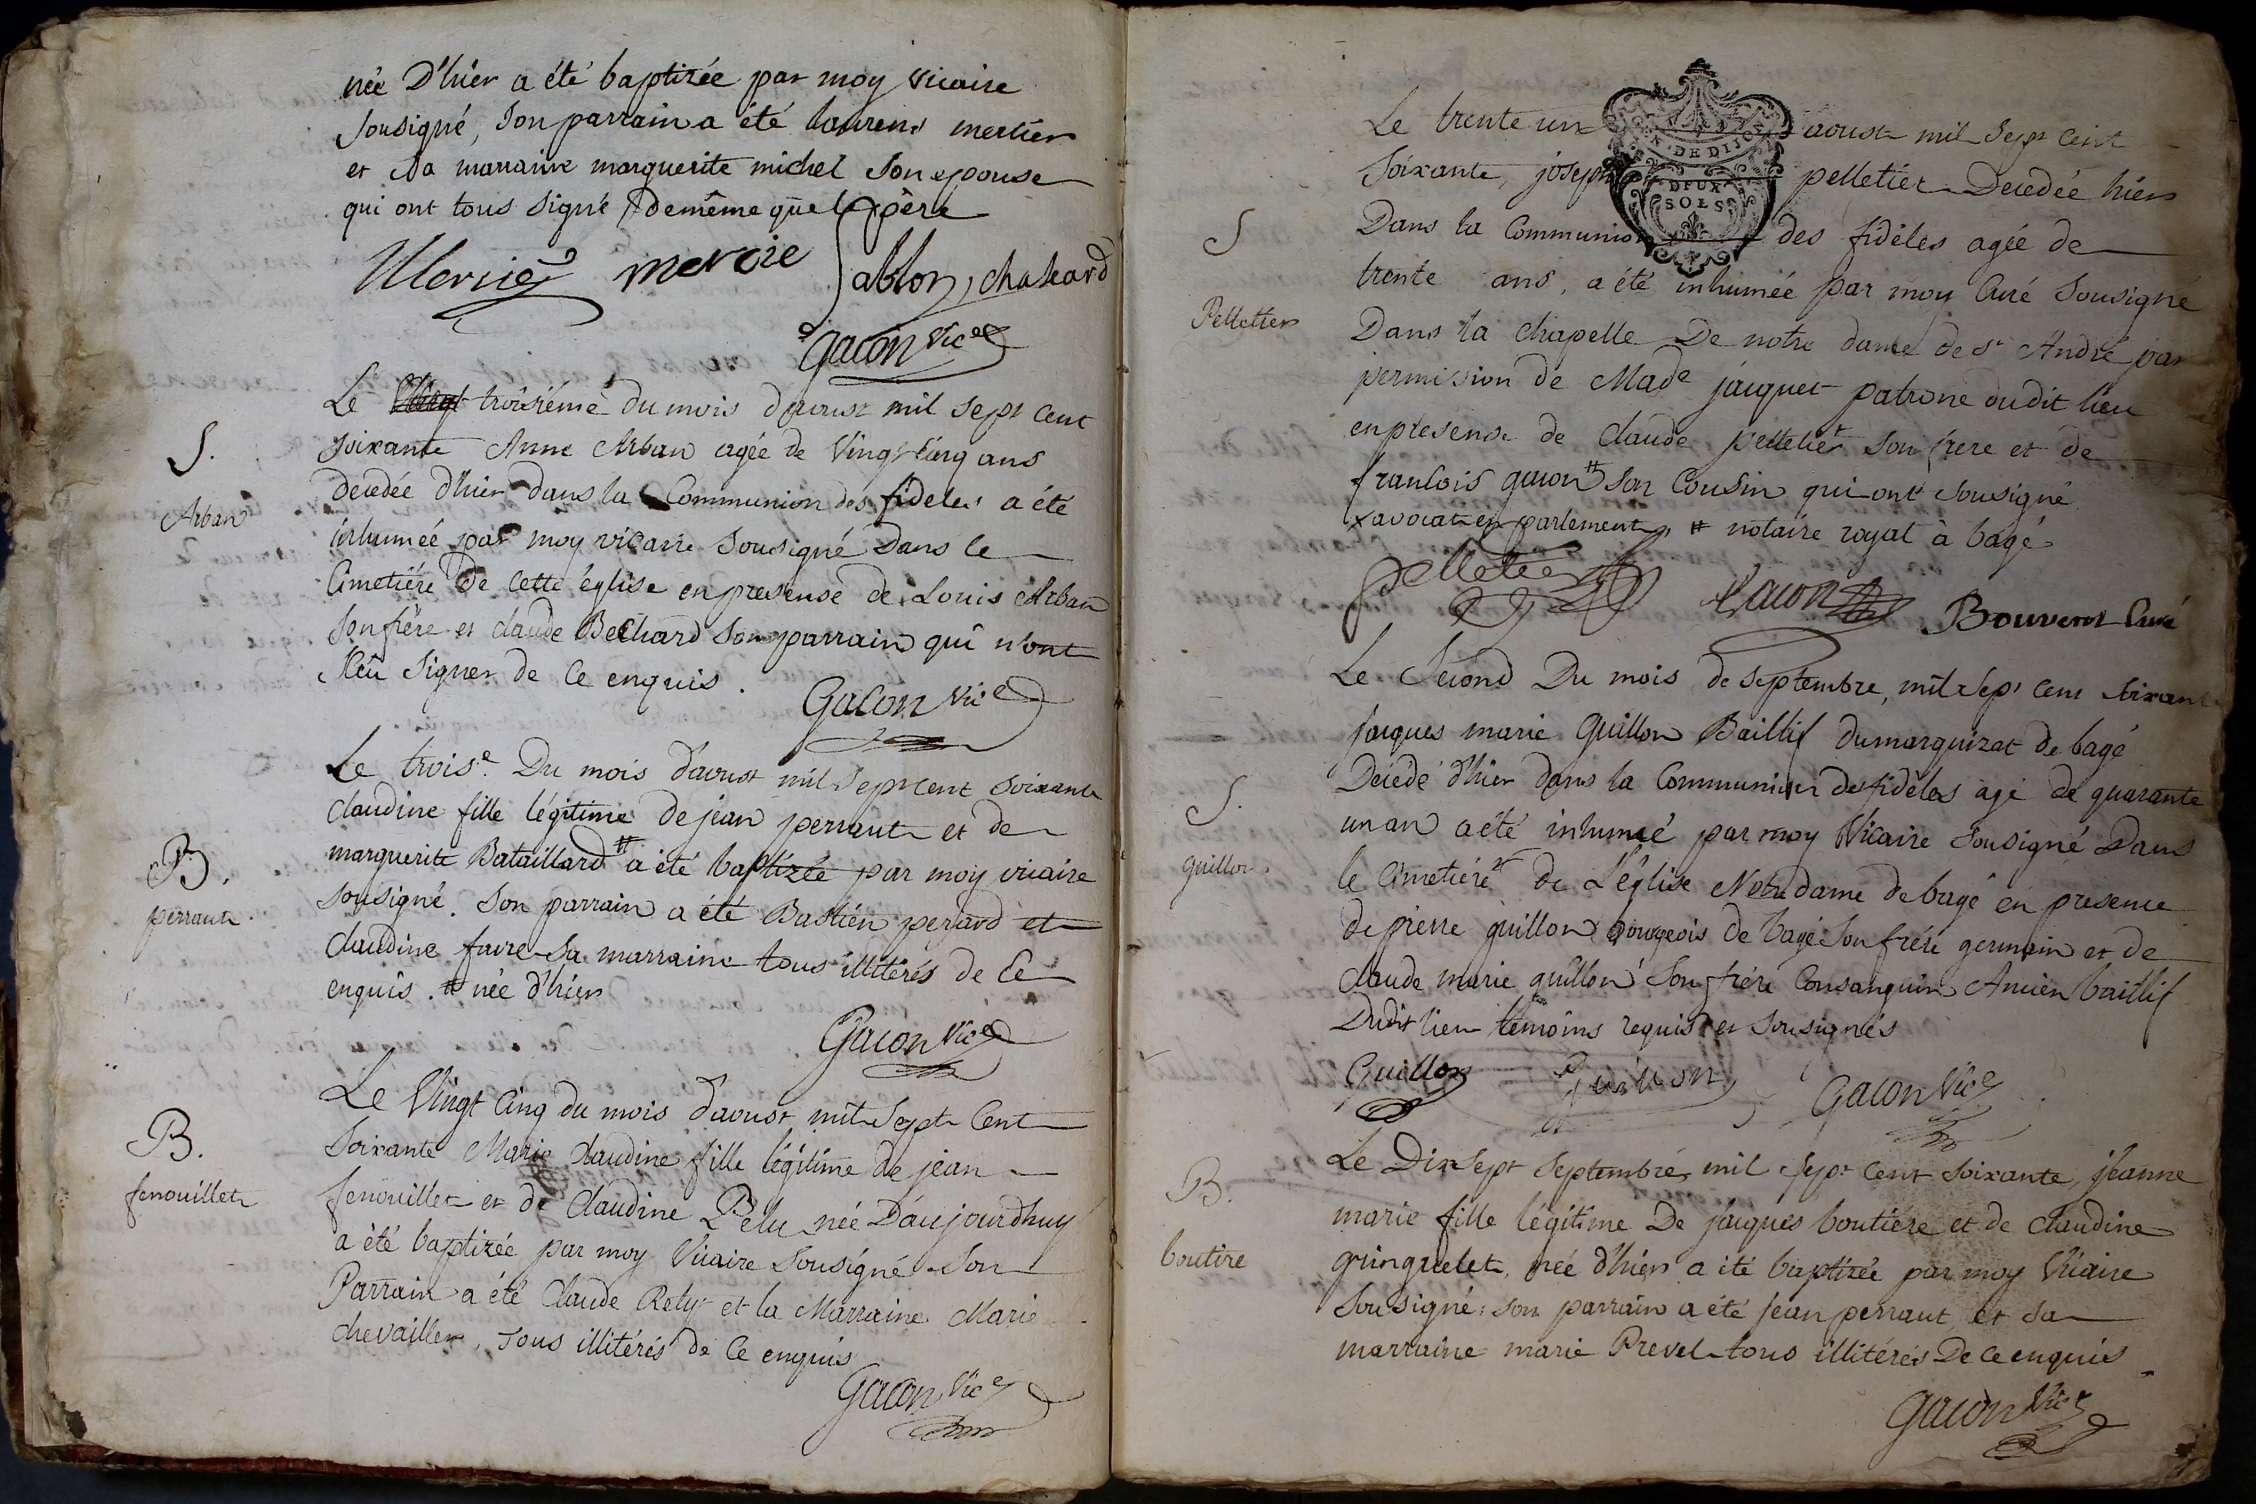 née D'hier a été baptizée par moy Vicaire
sousigné, son parrain a été laurens mercier
et sa marainne marguerite michel son epouse
qui ont tous signé de même que le père
Mercier mercie Sablon, chaleard
gacon Vice
S.
Arban
Le troisiéme du mois d'aoust mil sept cent
soixante Anne Arban agée de Vingt Cinq ans
decedée d'hier dans la Communion des fideles a été
inhumée par moy vicaire sousigné Dans le
Cimetiére de cette église en presense de Louis Arban
son frère et claude Bechard son parrain qui n'ont
sceu signer de ce enquis.
Gacon Vice
B.
perraut
Le troise. Du mois d'aoust mil sept cent soixante
claudine fille légitime de jean perraut et de
marguerite Bataillard # a été baptizée par moy vicaire
sousigné. son parrain a été Bastien perard et
claudine favre sa marraine tous illitérés de ce
enquis. # née d'hier
Gacon Vice
B.
fenouillet
Le Vingt Cinq du mois d'aoust mil Sept Cent
Soixante Marie claudine fille légitime de jean
fenouillet et de Claudine Pelu née D'aujourdhuy
a été baptizée par moy Vicaire Sousigné. Son
Parrain a été Claude Rety et la Marraine Marie
chevailler, tous illitérés de Ce enquis
Gacon Vice
GEN. DE DIJON
DEUX
SOLS
S
Pelletier
Le trente un aoust mil sept cent
soixante, joseph pelletier Decedée hier
Dans la Communion des fidèles agée de
trente ans, a été inhumée par moy Curé sousigné
Dans la chapelle De notre dame de St André par
permission de Made jacquet patrone dudit lieu
en presense de claude pelletier son frere et de
francois gacon # son Cousin qui ont sousigné
x avocat en parlement, # notaire royal à bagé
Pelletier Gacon Bouveret Curé
S.
guillon.
Le Second Du mois de Septembre, mil sept cent soixante
jacques marie Guillon Baillif du marquizat de bagé
Décédé d'hier dans la Communion des fidèles agé de quarante
un an a été inhumé par moy Vicaire sousigné Dans
le Cimetiére de L'église Notre dame de bagé en presence
de pierre guillon bourgeois de bagé son frére germain et de
claude marie guillon son frére Consanguin Ancien baillif
Dudit lieu temoins requis et sousignés
Guillon Guillon Gacon Vice
B.
boutire
Le Dix Sept Septembre mil sept Cent soixante, jeanne
marie fille légitime De jacques boutiére et de claudine
gringuelet, née d'hier a été baptizée par moy Vicaire
Sousigné: son parrain a été jean perraut et sa
marraine marie Prevel tous illitérés De ce enquis
Gacon Vice